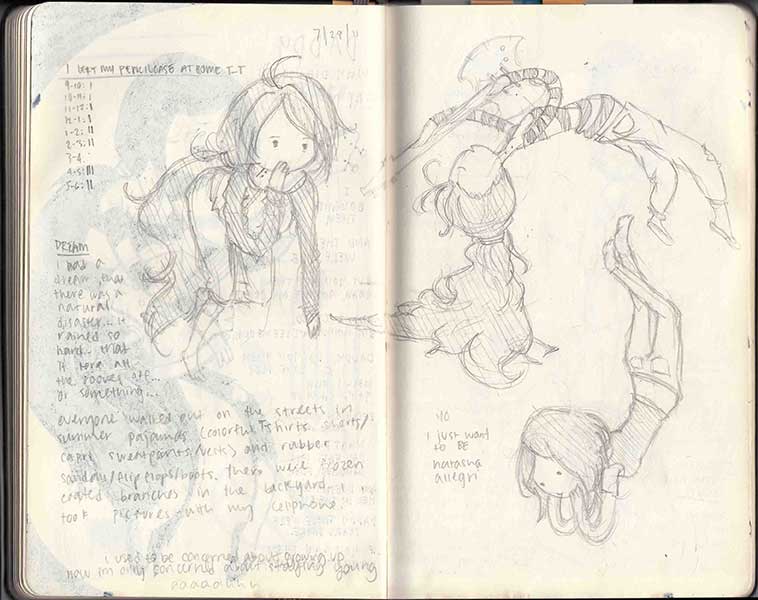 7/29/11
I LEFT MY PENCILCASE AT HOME T_T
9-10: I
10-11: I
11-12: I
12-1: I
1-2: II
2-3: II
3-4
4-5: III
5-6: II
DREAM
I had a
dream that
there was a
natural
disaster... it
rained so
hard.. that
it tore all
the rooves off...
or something...
everyone walked out on the streets in
summer pajamas (colorful T shirts, shorts/
capri sweatpants/vests) and rubber
sandals/flip flops/boots. there were frozen
coated branches in the backyard. I
took pictures with my cellphone
i used to be concerned about growing up
now im only concerned about staying young
aaaaahhh
YO
I just want
to BE
natasha
allegri